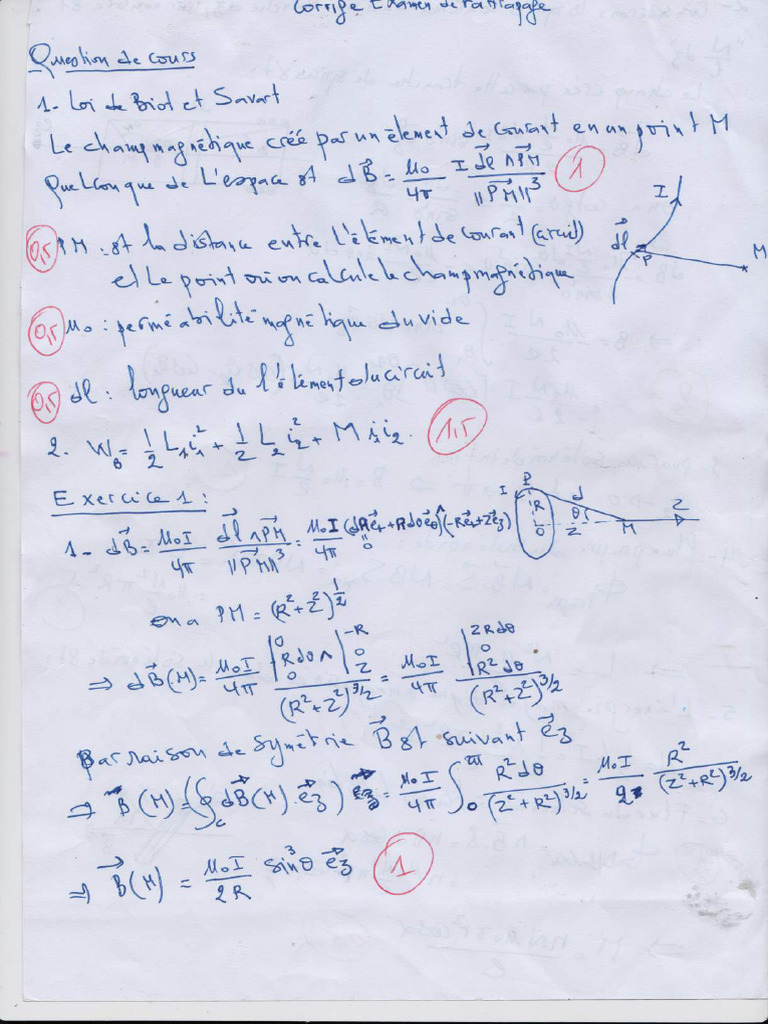 Corrigé Examen de Rattrapage
Question de cours
1- Loi de Biot et Savart
Le champ magnétique créé par un élément de courant en un point M
Quelconque de L'espace est dB⃗ = μ₀/4π I dl⃗ ∧ PM⃗ / ||PM⃗||³ 1
I
dl⃗
P
M
0,5 PM : est la distance entre l'élément de courant (circuit)
et Le point où on calcule le champ magnétique
0,5 μ₀ : perméabilité magnétique du vide
0,5 dl : longueur du l'élément du circuit
2. W = 1/2 L₁i₁² + 1/2 L₂i₂² + M i₁i₂. 1,5
Exercice 1 :
I P d
R θ z
0 z M
1- dB⃗ = μ₀I/4π dl⃗ ∧ PM⃗ / ||PM⃗||³ = μ₀I/4π (dR e⃗r + R dθ e⃗θ) ∧ (-R e⃗r + z e⃗z)
0
on a PM = (R² + Z²)^1/2
⇒ dB⃗(M) = μ₀I/4π |0 Rdθ 0 ∧ |-R 0 Z / (R² + Z²)^3/2 = μ₀I/4π |ZRdθ 0 R²dθ / (R² + Z²)^3/2
Par raison de symétrie B⃗ est suivant e⃗z
⇒ B⃗(M) = (∮c dB⃗(M) . e⃗z) e⃗z = μ₀I/4π ∫₀^2π R²dθ / (Z² + R²)^3/2 = μ₀I/2 R² / (Z² + R²)^3/2
⇒ B⃗(M) = μ₀I/2R sin³θ e⃗z 1